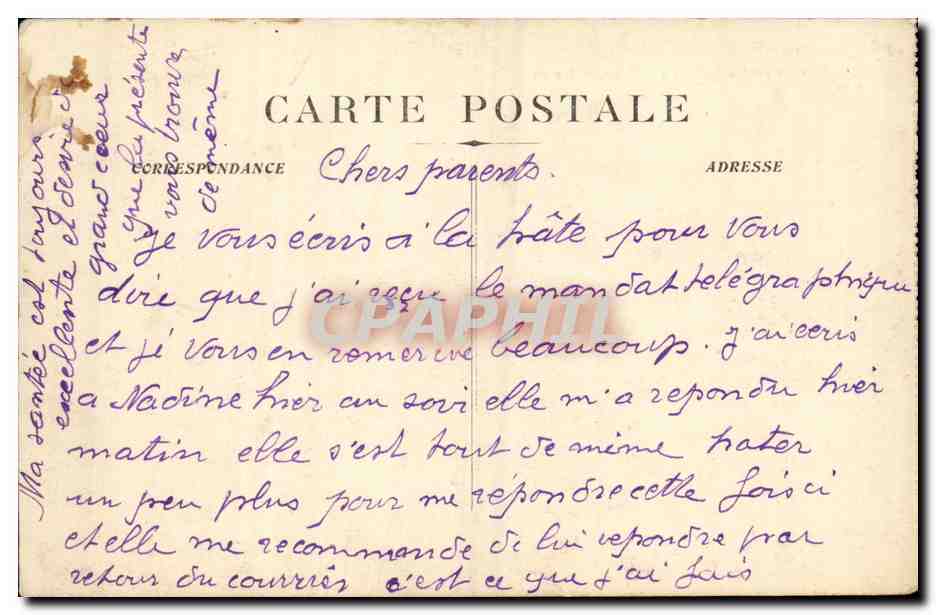 CARTE POSTALE
CORRESPONDANCE
ADRESSE
Chers parents.
je vous écris à la hâte pour vous
dire que j'ai reçu le mandat telégraphique
et je vous en remercie beaucoup. j'ai ecris
a Nadine hier au soir elle m'a repondu hier
matin elle s'est tout de même hater
un peu plus pour me répondre cette fois ci
et elle me recommande de lui repondre par
retour du courrier c'est ce que j'ai fais
Ma santée est toujours
excellente et desire de
grand coeur
que la présente
vous trouve
de même
CPAPHIL